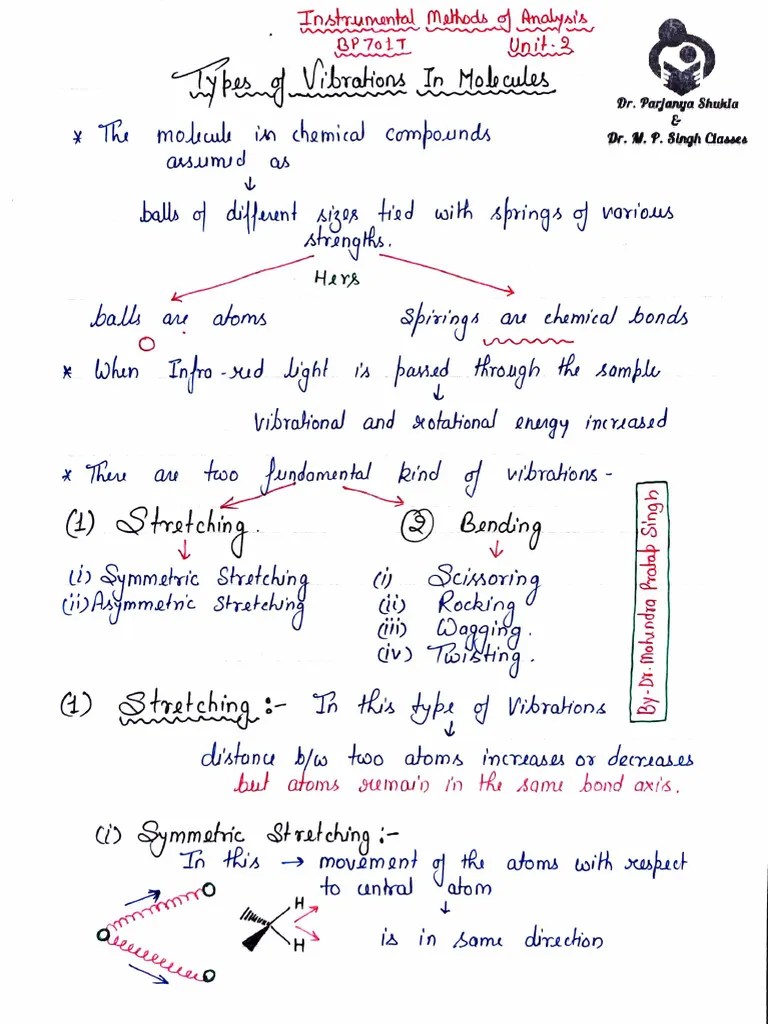 Instrumental Methods of Analysis
BP701T Unit-2
Types of Vibrations In Molecules
Dr. Parjanya Shukla
&
Dr. M. P. Singh Classes
* The molecule in chemical compounds
assumed as
↓
balls of different sizes tied with springs of various
strengths.
Hers
balls are atoms Spirings are chemical bonds
* When Infra-red light is passed through the sample
↓
Vibrational and rotational energy increased
* There are two fundamental kind of vibrations -
(1) Stretching. ② Bending
↓ ↓
(i) Symmetric Stretching (i) Scissoring
(ii) Asymmetric Stretching (ii) Rocking
(iii) Wagging.
(iv) Twisting.
By-Dr. Mahendra Pratap Singh
(1) Stretching :- In this type of Vibrations
↓
distance b/w two atoms increases or decreases
but atoms remain in the same bond axis.
(i) Symmetric Stretching :-
In this → movement of the atoms with respect
to central atom
↓
is in same direction
H
H